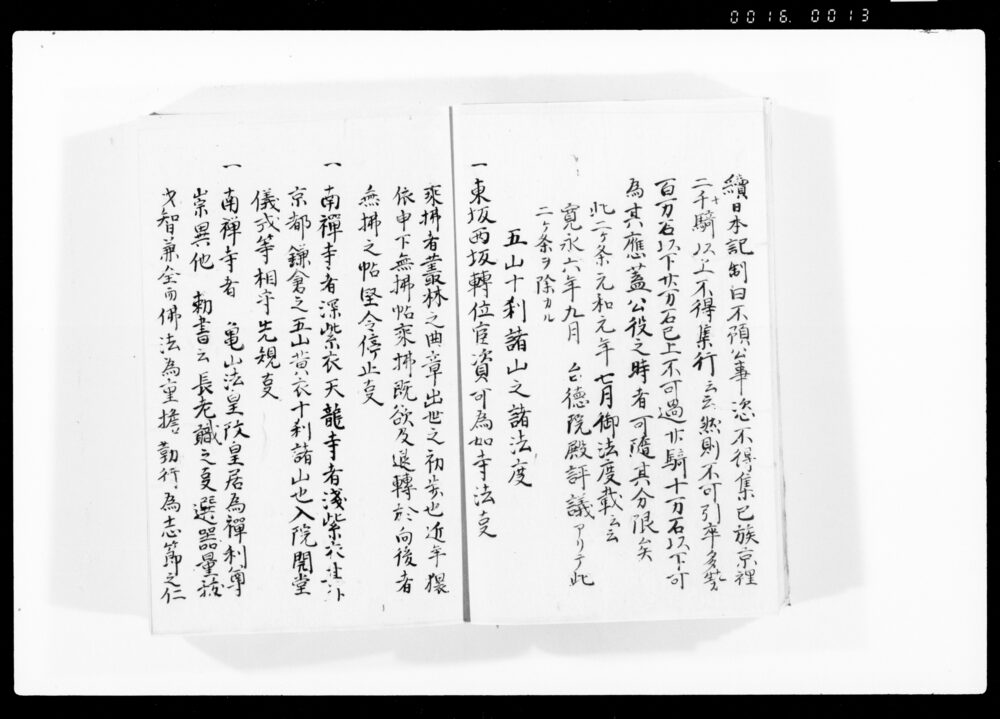 0016. 0013
續日本記制曰不預公事恣不得集己族京裡
二十騎以上不得集行云云然則不可引率多勢
百万石以下廿万石已上不可過廿騎十万石以下可
為其應蓋公役之時者可隨其分限矣
此二ケ条元和元年七月御法度載云云
寛永六年九月 台徳院殿評議アリテ此
二ケ条ヲ除カル
五山十刹諸山之諸法度
一 東坂西坂轉位官資可為如寺法叓
秉拂者叢林之典章出世之初歩也近年猥
依申下無拂帖秉拂既欲及退轉於向後者
無拂之帖堅令停止叓
一 南禪寺者深紫衣天龍寺者淺紫衣
京都鎌倉之五山黄衣十刹諸山也入院開堂
儀式等相守先規叓
一 南禪寺者 亀山法皇改皇居為禪刹尊
崇異他 勅書云長老職之叓選器量
才智兼全而佛法為重擔勤行為志節之仁